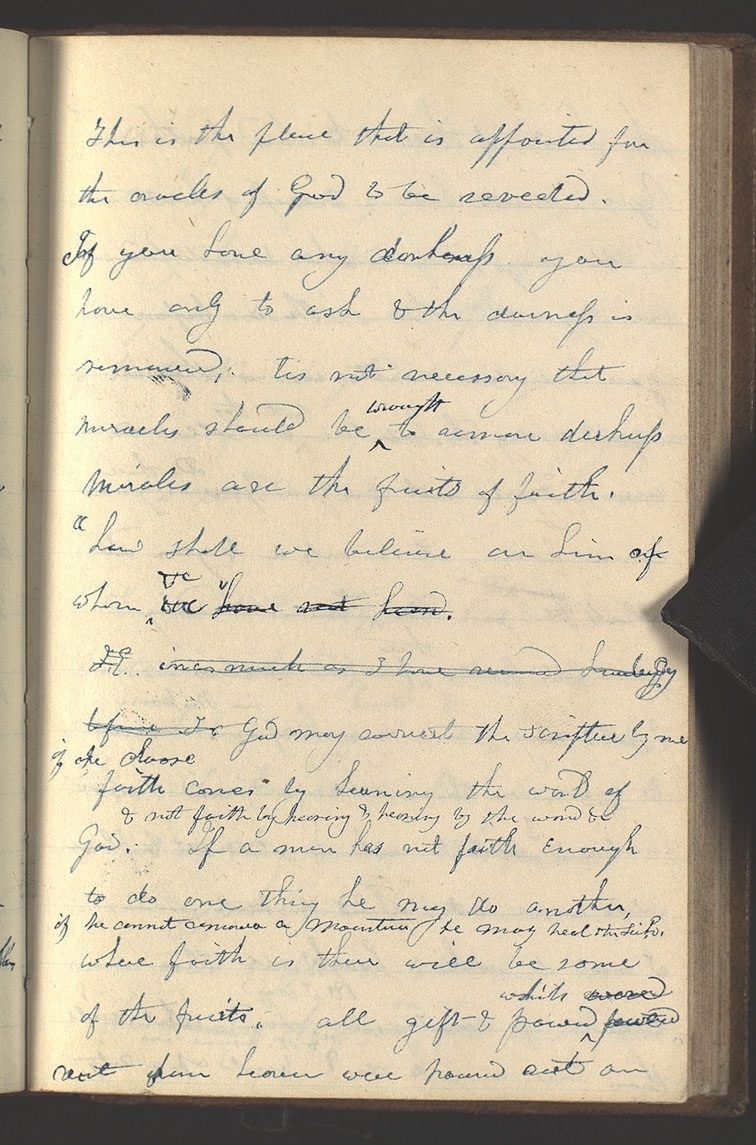 This is the place that is appointed for
the oracles of God to be reveeled.
If you have any darkness you
have only to ask & the darness is
removed, tis not necessary that
wrought
miracles should be to remove darkness
Miracles are the fruits of faith.
"how shall we believe on him of
ye
whom we have not heard.
I.E. inasmuch as I have
before to God may correct the scripture by me
if he choose
faith comes by hearing the word of
& not faith by hearing & hearing by the word &c
God. If a man has not faith enough
to do one thing he may do another,
if he cannot remove a Mountain he may heal the sick.
where faith is there will be some
of the fruits. all gift & power
which were poured
out from heaven were poured out on